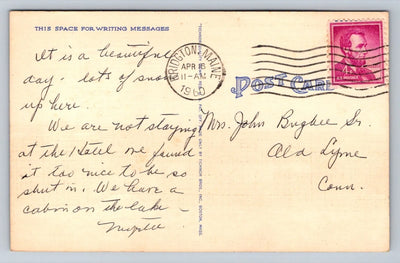 THIS SPACE FOR WRITING MESSAGES
It is a beautiful
day - lots of snow
up here.
We are not staying
at the Hotel we found
it too nice to be so
shut in. We have a
cabin on the lake -
Myrtle
MAINE
APR 18
11-AM
1960
POST CARD
4¢
U.S. POSTAGE
Mrs. John Bugbee Sr
Old Lyme
Conn.